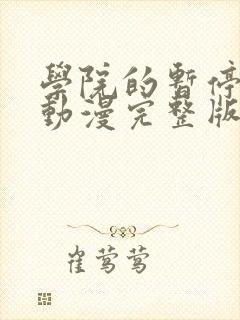 學院的暫停
動漫完整版
崔莺莺